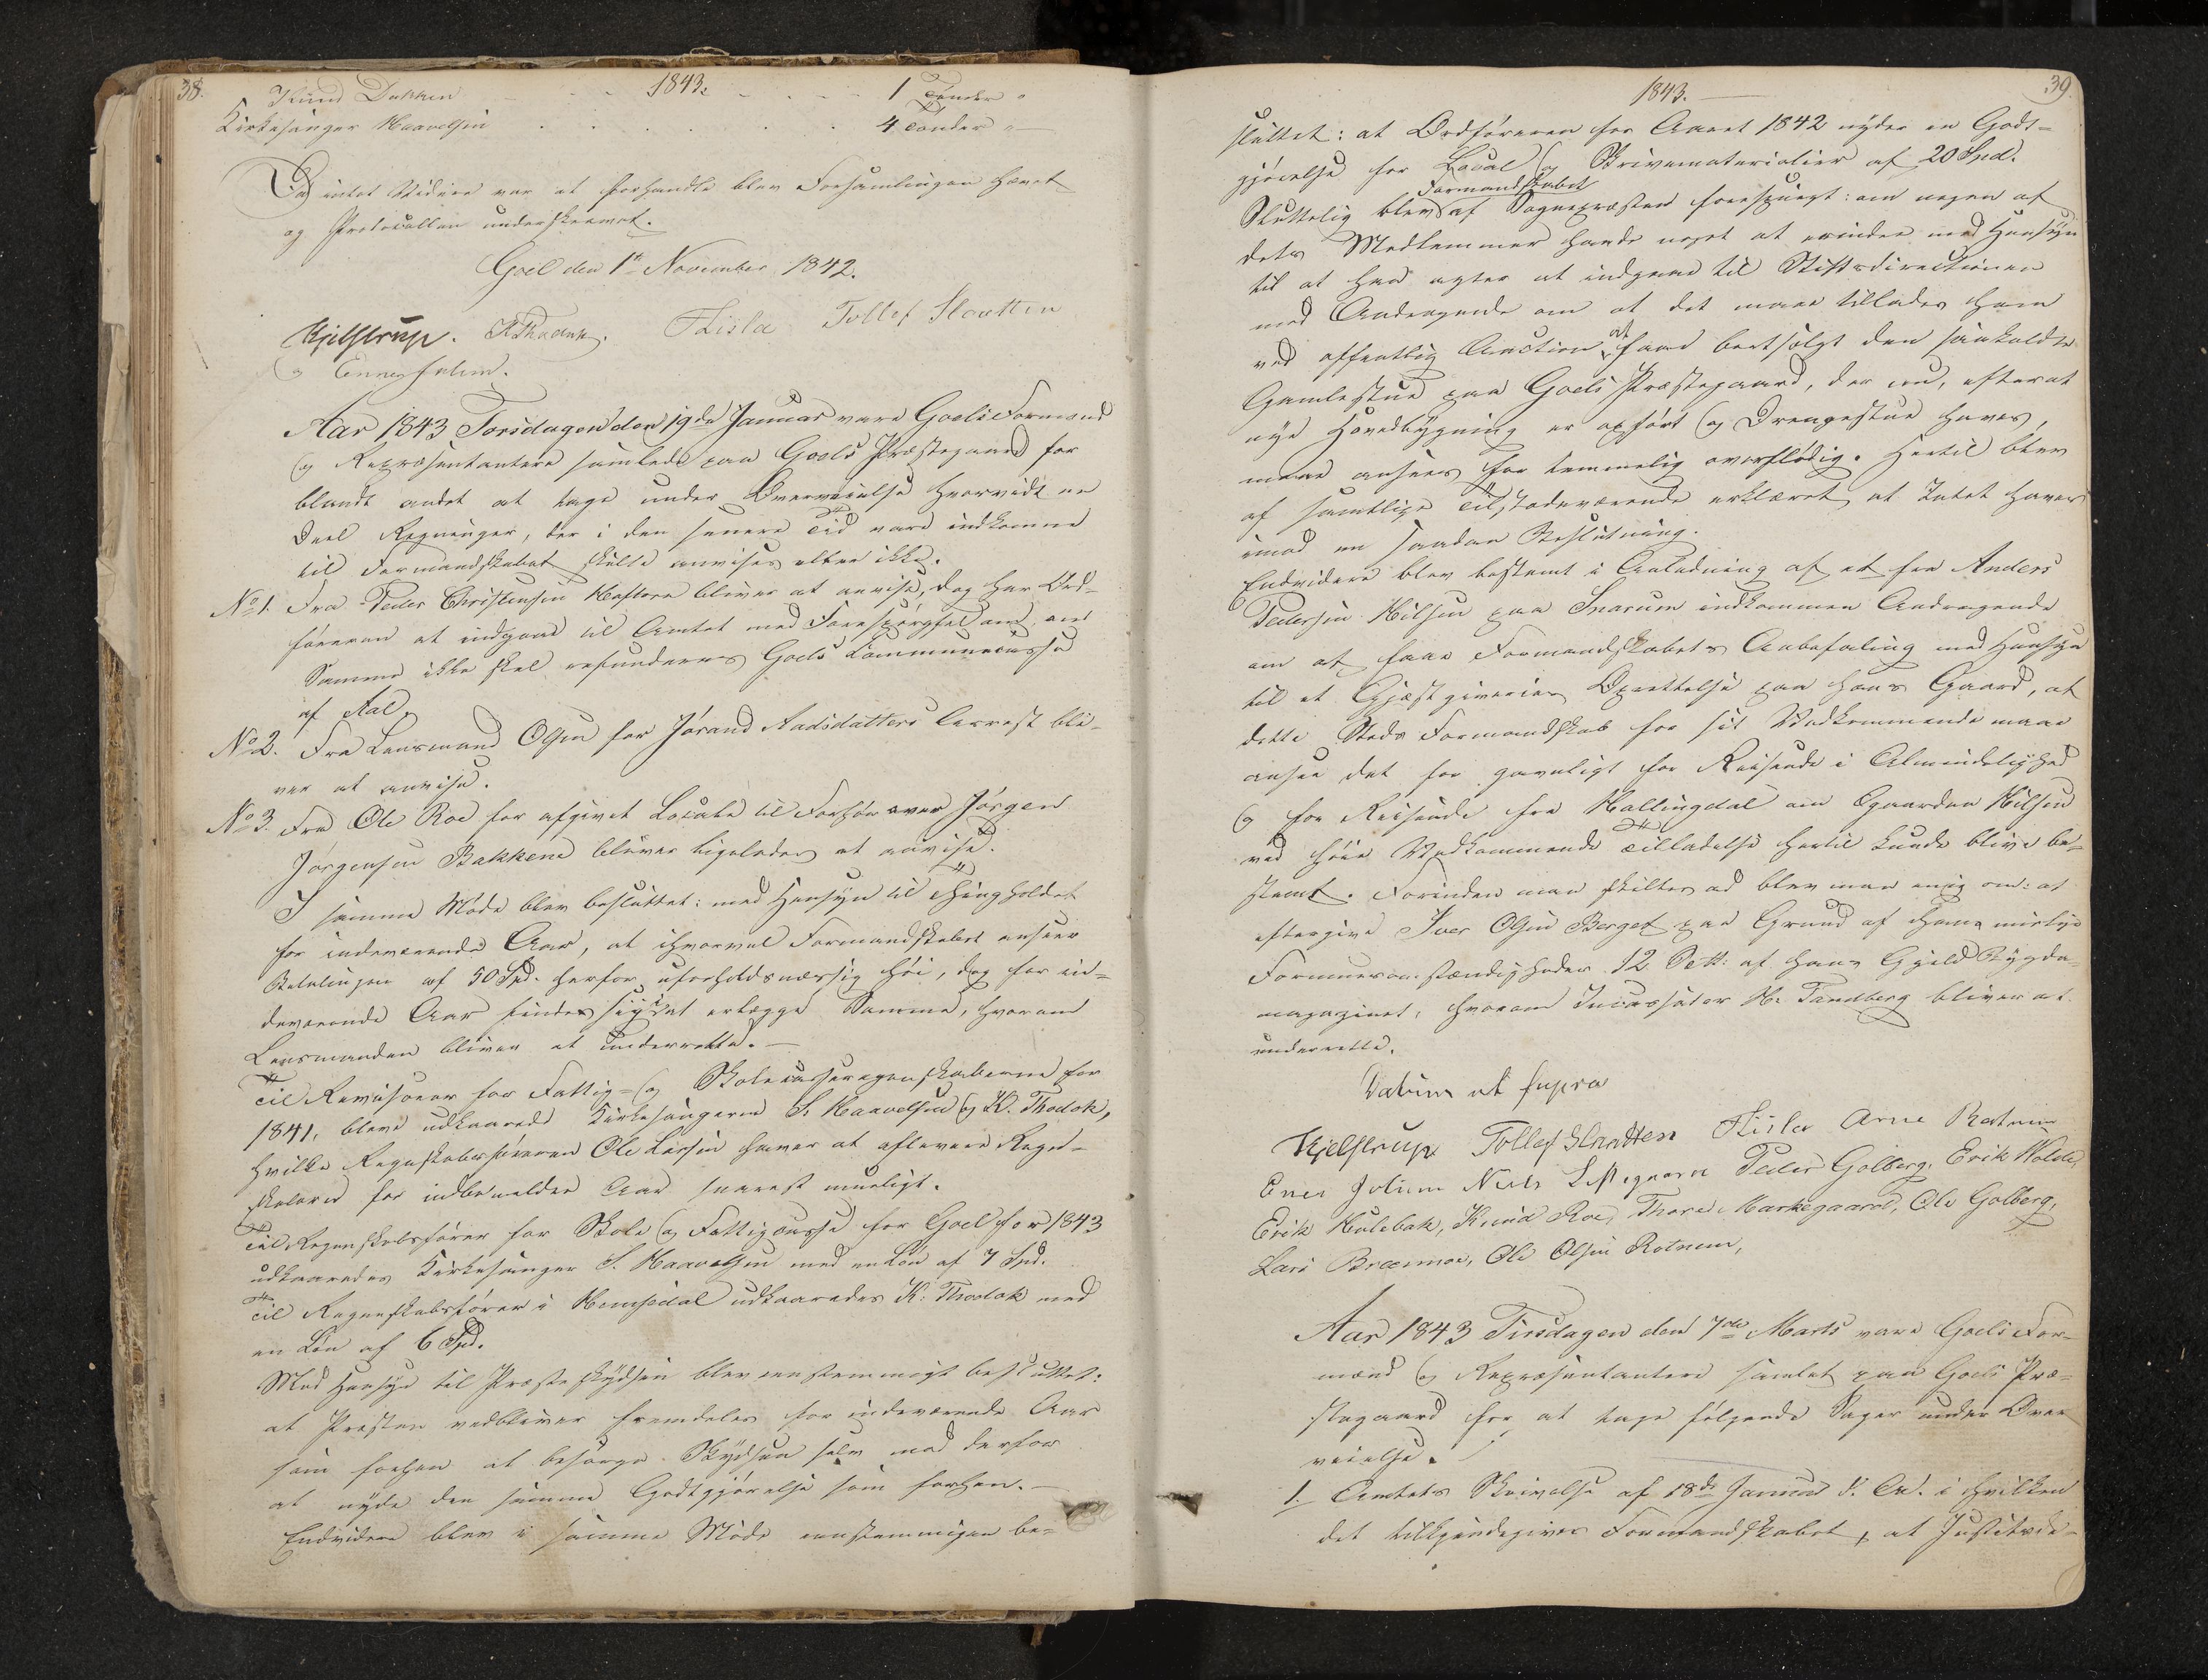 38.
1843.
Knud Dokken 1 Tønder "
Kirkesanger Haavelsen . . . . . . 4 Tønder "
Da intet Videre var at forhandle blev Forsamlingen hævet
og Protocollen underskrevet.
Goel den 1ste November 1842.
Kjelstrup. TLisla Tollef Slaatten
Aar 1843 Torsdagen den 19de Januar vare Goels Formænd
og Repræsentantere samlede paa Goels Præstegaard for
blandt andet at tage under Overveielse hvorvidt en
Deel Regninger, der i den senere Tid vare indkomne
til Formandskabet skulle anvises eller ikke.
No 1. Fra Peder Christensen Haftorn bliver at anvise, dog har Ord-
føreren at indgaae til Amtet med Forespørgsel om, om
Samme ikke skal refunderes Goels Communecasse
af Aal.
No 2. Fra Lensmand Olsen for Jørand Aadsdatters Arrest bli-
ver at anvise.
No 3. Fra Ole Roe for afgivet Locale til Forhør over Jørgen
Jørgensen Bakkene bliver ligeledes at anvise.
I samme Møde blev besluttet: med Hensyn til Thingholdet
for indeværende Aar, at ihvorvel Formandskabet anseer
Betalingen af 50 Spd. herfor uforholdsmæssig høi, dog for in-
deværende Aar finder sig i at erlægge Samme, hvorom
Lensmanden bliver at underrette.
Til Revisorer for Fattig- og Skolecasseregnskaberne for
1841, bleve udkaarede Kirkesangeren S. Haavelsen og K. Thodok,
hvilke Regnskabsføreren Ole Larsen haver at aflevere Regn-
skaberne for indbemeldte Aar snarest mueligt.
Til Regnskabsfører for Skole og Fattigcasse for Goel for 1843
udkaaredes Kirkesanger S. Haavelsen med en Løn af 7 Spd.
Til Regnskabsfører i Hemsedal udkaaredes K. Thodok med
en Løn af 6 Spd.
Med Hensyn til Præsteskydsen blev eenstemmigt besluttet:
at Præsten vedbliver fremdeles for indeværende Aar
som forhen at besørge Skydsen selv mod derfor
at nyde den samme Godtgjørelse som forhen.
Endvidere blev i samme Møde eenstemmigen be-
39.
1843.
sluttet: at Ordføreren for Aaret 1842 nyder en Godt-
gjørelse for Local og Skrivematerialier af 20 Spd.
Formandskabet
Sluttelig blev af Sognepræsten forespurgt: om nogen af
dets Medlemmer havde noget at erindre med Hensyn
til at han agter at indgaae til Stiftsdirectionen
med Andragende om at det maae tillades ham
ved offentlig Auction at faae bortsolgt den saakaldte
Gamlestue paa Goels Præstegaard, der nu, efterat
nye Hovedbygning er opført og Drengestue haves,
maae ansees for temmelig overflødig. Hertil blev
af samtlige Tilstædeværende erklæret at Intet haves
imod en saadan Beslutning.
Endvidere blev bestemt i Anledning af et fra Anders
Pedersen Hilsen paa Snarum indkommen Andragende
om at faae Formandskabets Anbefaling med Hensyn
til et Gjæstgiveries Oprettelse paa hans Gaard, at
dette Steds Formandskab for sit Vedkommende maae
ansee det for gavnligt for Reisende i Almindelighed
og for Reisende fra Hallingdal om Gaarden Hilsen
ved høie Vedkommende Tilladelse hertil kunde blive be-
stemt. Forinden man skiltes ad blev man enig om: at
eftergive Iver Olsen Berget paa Grund af hans mislige
Formuesomstændigheder 12 Sett: af hans Gjeld Bygde-
magazinet, hvorom Incassator Hr. Tandberg bliver at
underrette.
Datum ut supra
Kjelstrup Tollef Slaatten TLisla Arne Rotnem
Peder Golberg, Erik Wolde,
Erik Hulebak, Knud Roe, Thore Markegaard, Ole Golberg,
Lars Breenmoe, Ole Olsen Rotnem,
Aar 1843 Tirsdagen den 7de Marts vare Goels For-
mænd og Repræsentantere samlet paa Goels Præ-
stegaard for at tage følgende Sager under Over
veielse.
1. Amtets Skrivelse af 18de Januar d. A. i hvilken
det tilkjendegives Formandskabet, at Justitsde-